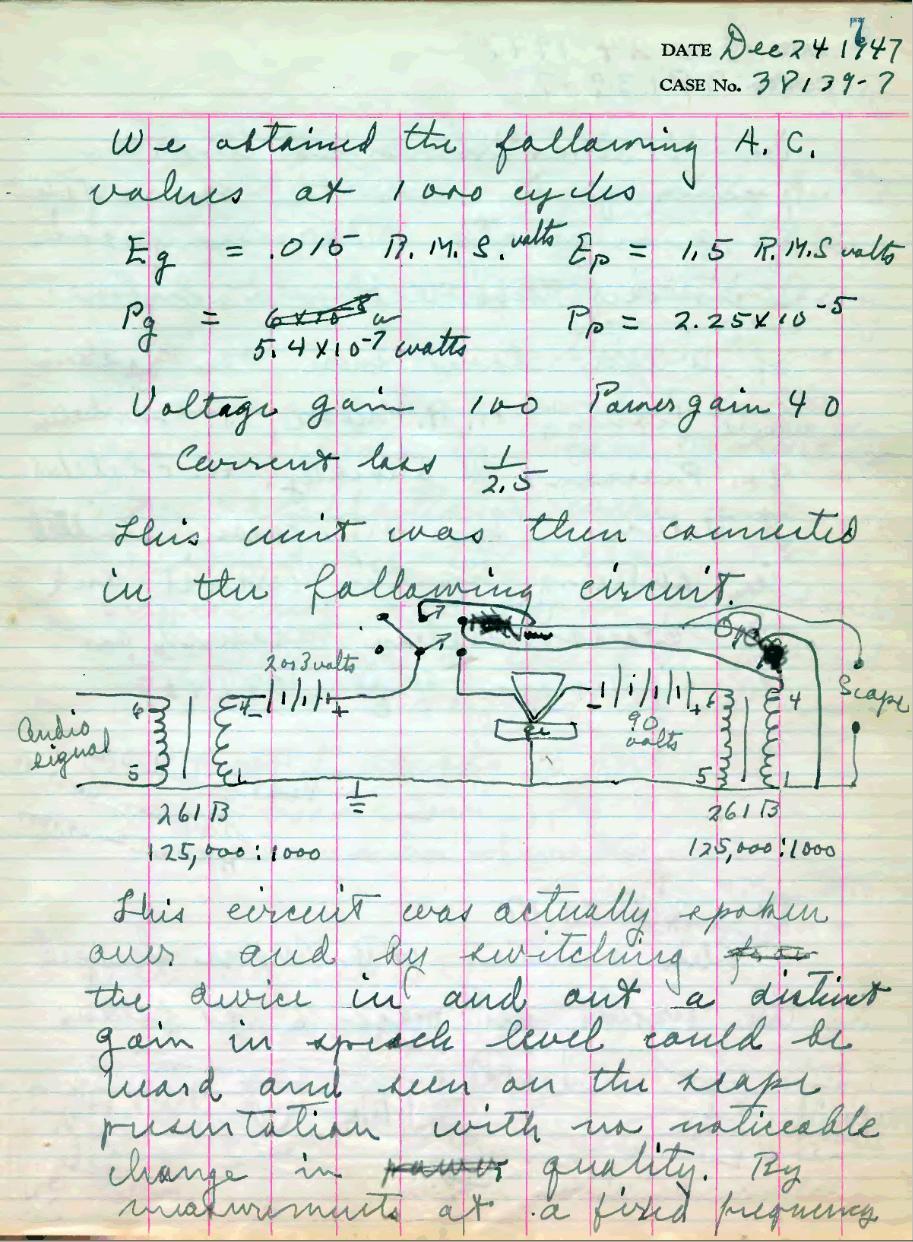 7
DATE Dec 24 1947
CASE No. 38139-7
We obtained the following A.C.
values at 1000 cycles
Eg = .015 R.M.S. volts Ep = 1.5 R.M.S volts
Pg = 6 x 10-8 w Pp = 2.25 x 10-5
5.4 x 10-7 watts
Voltage gain 100 Power gain 40
Current loss 1/2.5
This unit was then connected
in the following circuit.
2 or 3 volts
Audio signal
6 5 4 1
- +
Ge
- +
90 volts
6 5 4 1
Scope
261B 261B
125,000:1000 125,000:1000
This circuit was actually spoken
over and by switching from
the device in and out a distinct
gain in speech level could be
heard and seen on the scope
presentation with no noticeable
change in power quality. By
measurements at a fixed frequency